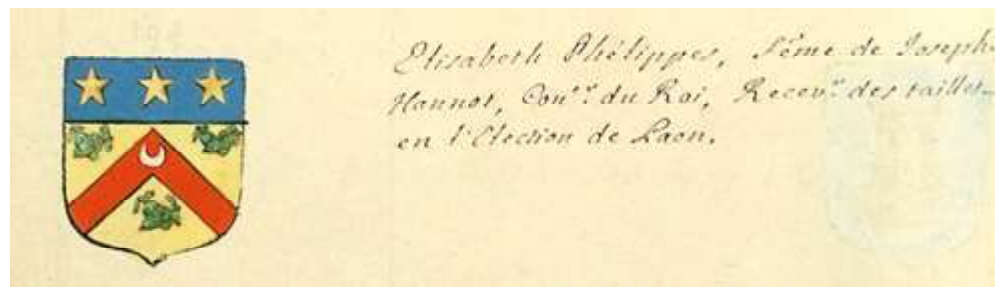 Elisabeth Phélippes, Fẽme de Joseph
Hannot, Con.er du Roi, Recev.r des tailles
en l'Election de Laon.